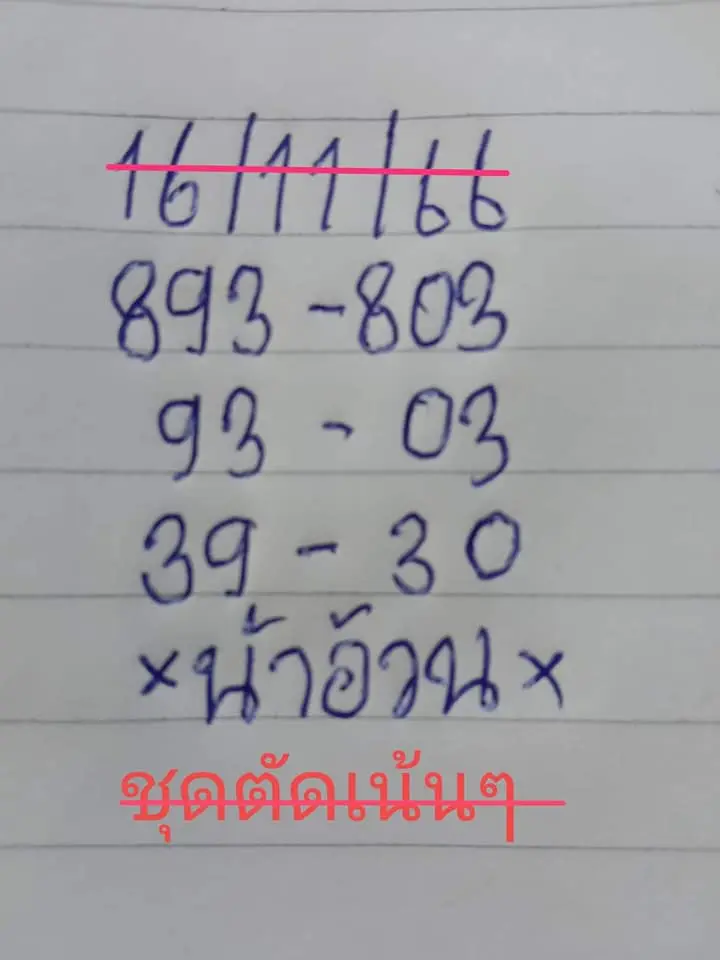 16/11/66
893-803
93-03
39-30
×น้าอ้วน×
ชุดตัดเน้นๆ